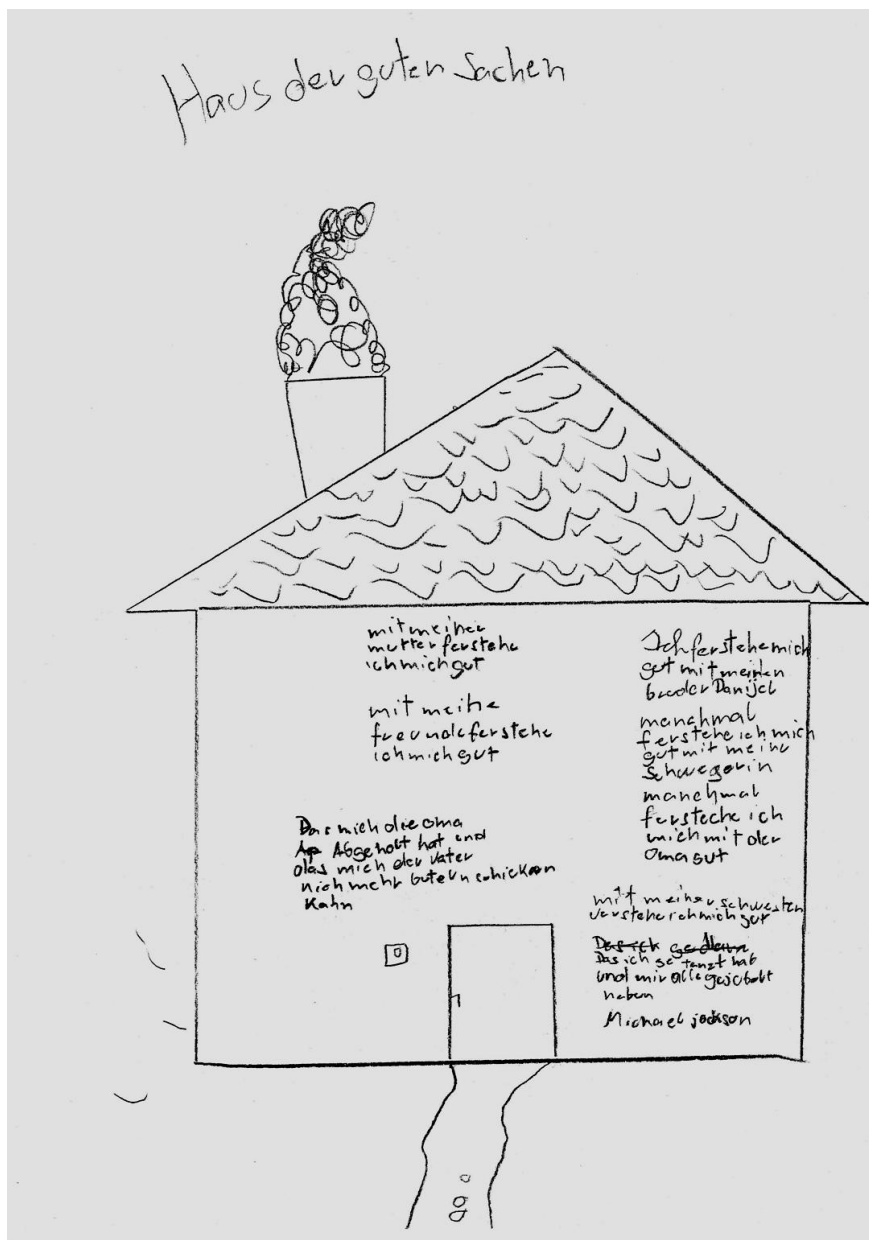 Haus der guten Sachen
mit meiner
mutter ferstehe
ich mich gut
mit meine
freunde ferstehe
ich mich gut
Das mich die oma
Abgeholt hat und
das mich der vater
nich mehr betern schicken
kahn
Ich ferstehe mich
gut mit meinen
bruder Danijel
manchmal
ferstehe ich mich
gut mit meine
schwegerin
manchmal
fersteche ich
mich mit der
oma gut
mit meiner schwesten
verstehe ich mich gut
Das ich ge tanzt hab
und mir alle gejubelt
haben
Michael jackson